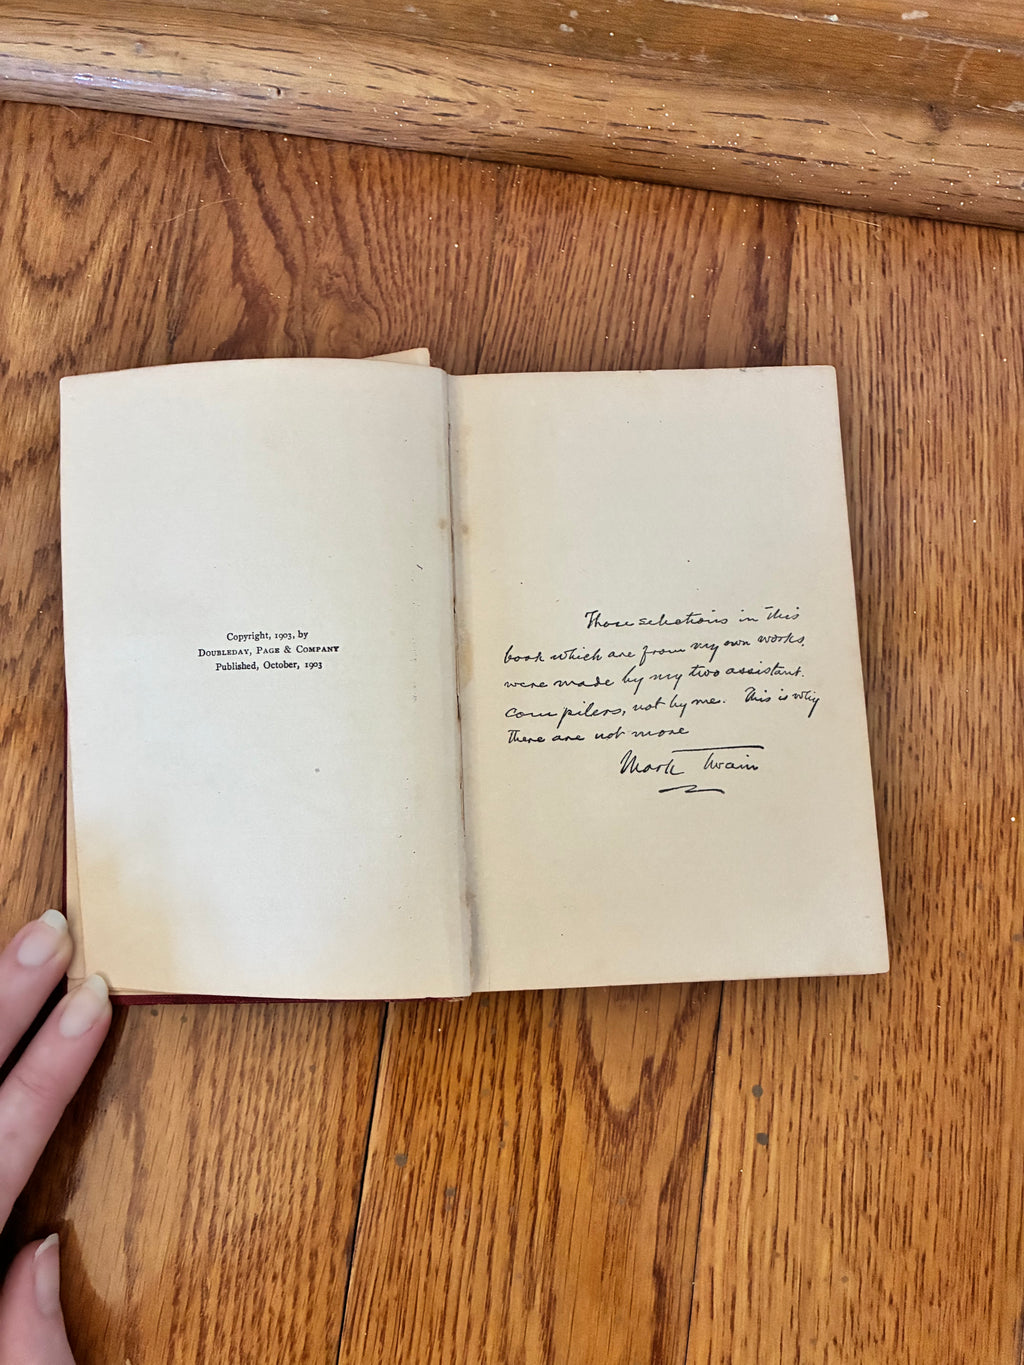 Copyright, 1903, by
Doubleday, Page & Company
Published, October, 1903
Those selections in this
book which are from my own works,
were made by my two assistant
compilers, not by me. This is why
there are not more
Mark Twain